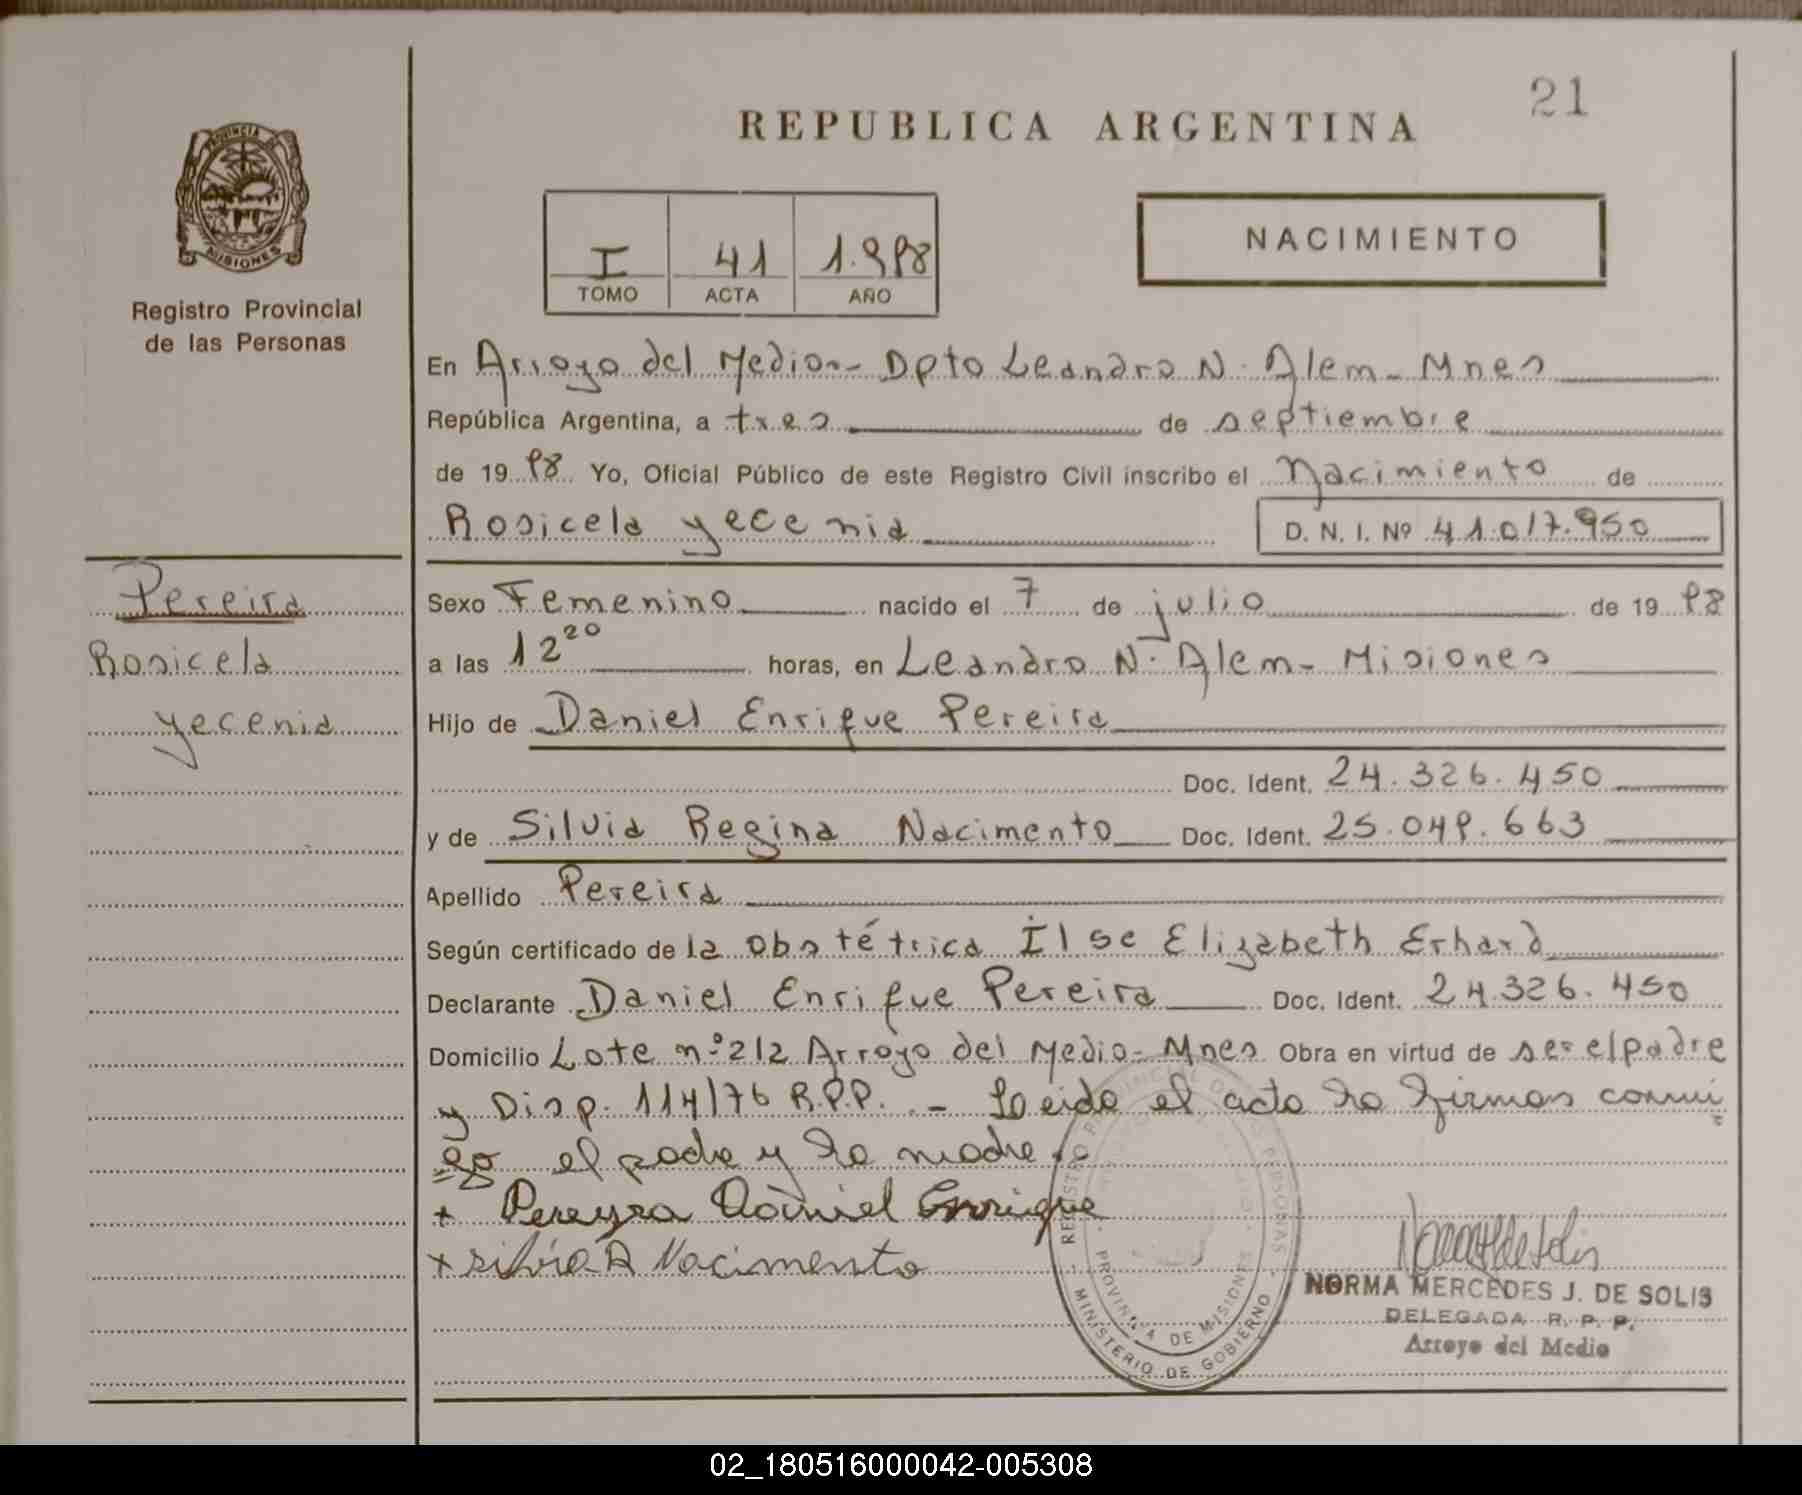 21
REPUBLICA ARGENTINA
PROVINCIA DE
MISIONES
Registro Provincial
de las Personas
I 41 1.998
TOMO ACTA AÑO
NACIMIENTO
En Arroyo del Medio - Dpto Leandro N. Alem - Mnes
República Argentina, a tres de septiembre
de 19 98 Yo, Oficial Público de este Registro Civil inscribo el Nacimiento de
Rosicela yecenia D. N. I. Nº 41.017.950
Pereira
Rosicela
yecenia
Sexo Femenino nacido el 7 de julio de 19 98
a las 12 20 horas, en Leandro N. Alem - Misiones
Hijo de Daniel Enrique Pereira
Doc. Ident. 24.326.450
y de Silvia Regina Nacimento Doc. Ident. 25.049.663
Apellido Pereira
Según certificado de la obstétrica Ilse Elizabeth Erhard
Declarante Daniel Enrique Pereira Doc. Ident. 24.326.450
Domicilio Lote nº 212 Arroyo del Medio - Mnes Obra en virtud de ser el padre
y Disp. 114/76 R.P.P. - Leido el acta la firman conmi
go el padre y la madre.
+ Pereyra Daniel Enrique
+ silvia R Nacimento
REGISTRO PROVINCIAL DE LAS PERSONAS
MINISTERIO DE GOBIERNO
PROVINCIA DE MISIONES
NORMA MERCEDES J. DE SOLIS
DELEGADA R. P. P.
Arroyo del Medio
02_180516000042-005308